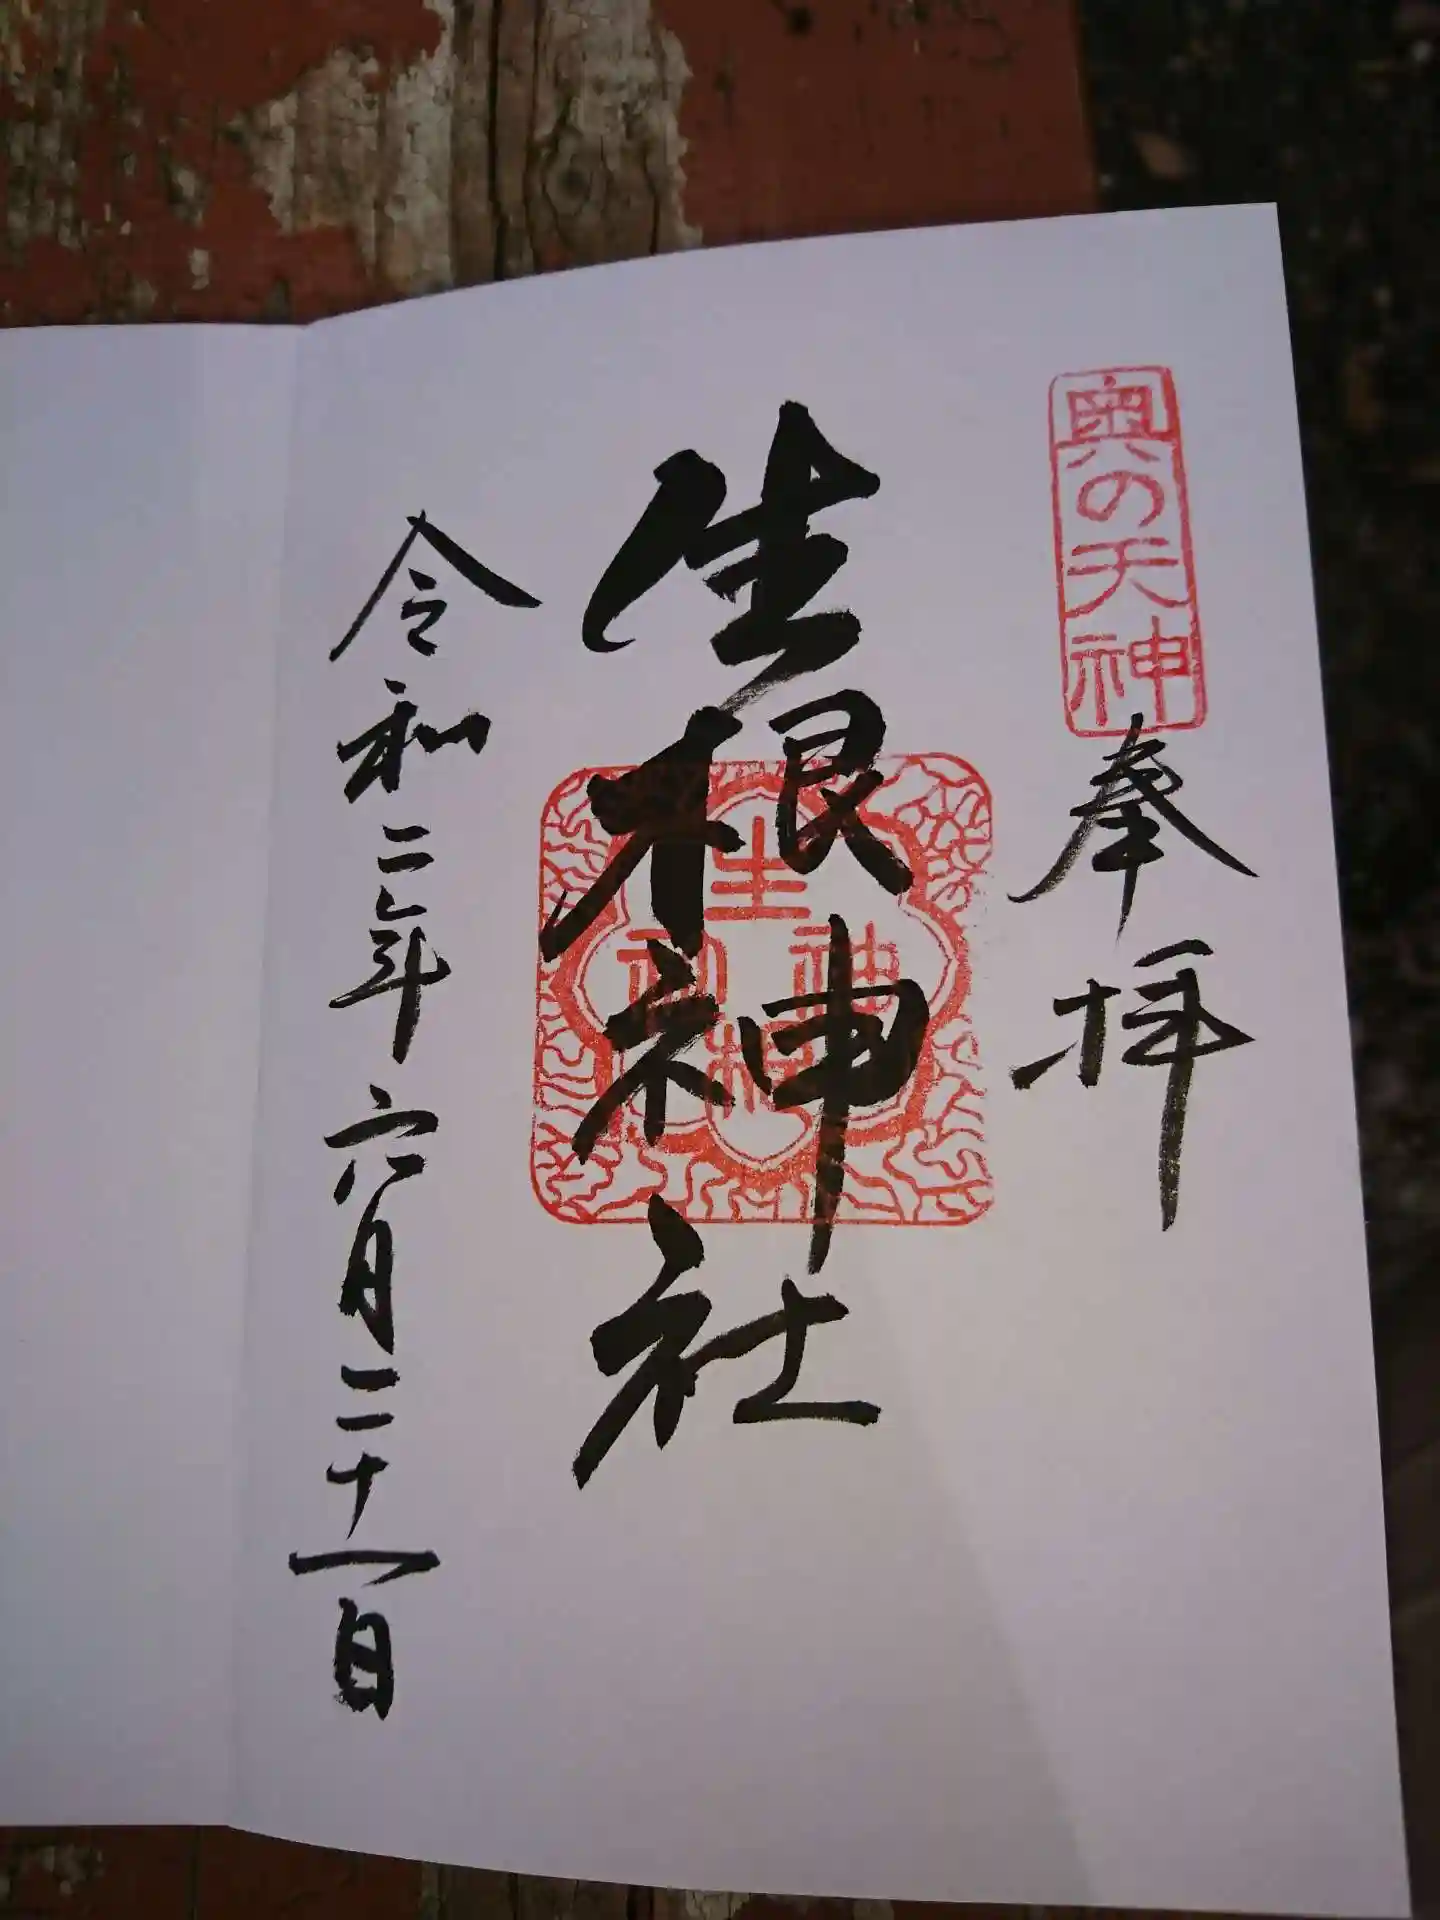 奥の天神
奉拝
生根神社
生根神社
令和二年六月二十一日